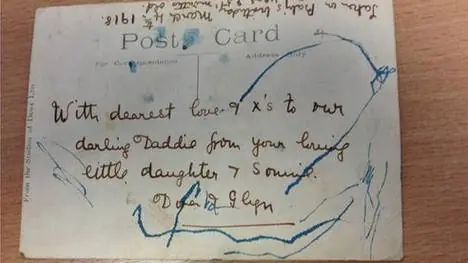 Taken on Rody's birthday March 4th 1918.
Post Card
For Correspondence
Address Only
From the Studios of Dows Ltd
With dearest love & x's to our
darling Daddie from your loving
little daughter & Sonnie.
Dora & Glyn